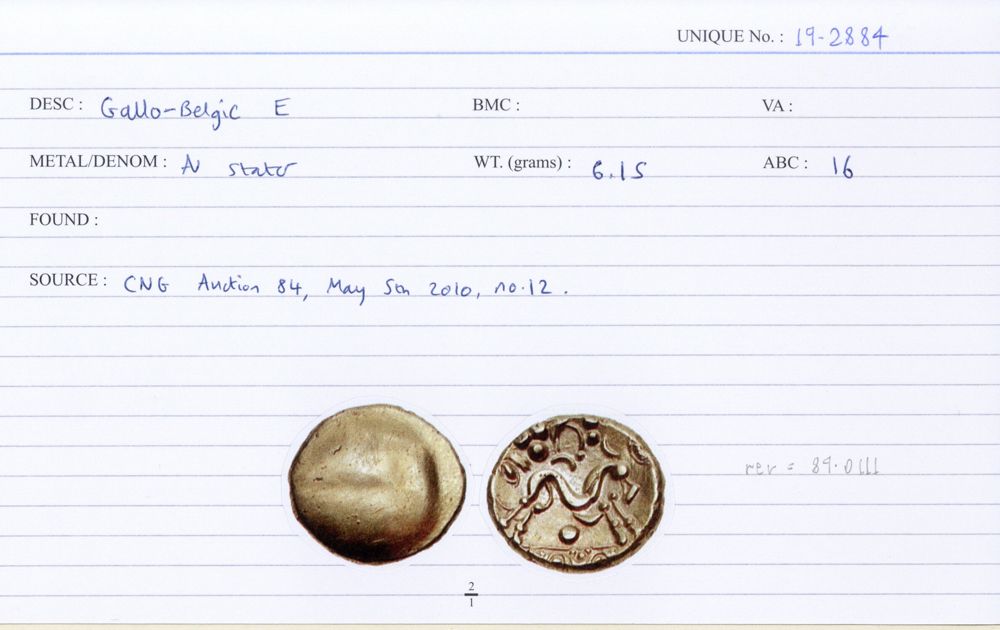 UNIQUE No. : 19-2884
DESC : Gallo-Belgic E BMC : VA :
METAL/DENOM : N stater WT. (grams) : 6.15 ABC : 16
FOUND :
SOURCE : CNG Auction 84, May 5th 2010, no.12.
rev = 89.0111
2
1